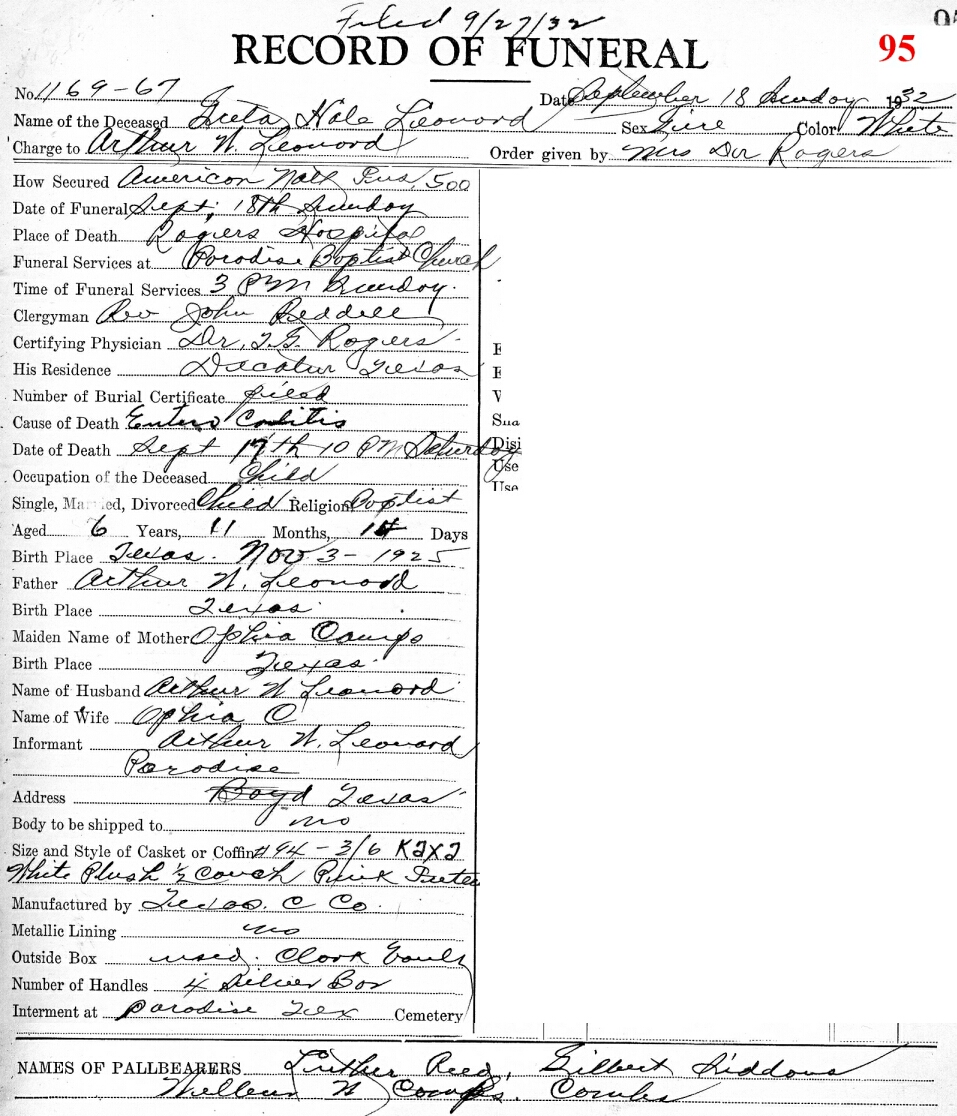 Filed 9/27/32
RECORD OF FUNERAL
95
No. 1169-67
Date September 18 Sunday 1932
Name of the Deceased Hale Leonard Sex Color White
Charge to Arthur W. Leonard Order given by Mrs Dr Rogers
How Secured American Natl Ins. 500
Date of Funeral Sept. 18th Sunday
Place of Death Rogers Hospital
Funeral Services at Paradise Baptist Church
Time of Funeral Services 3 PM Sunday.
Clergyman Rev John Beddell
Certifying Physician Dr. T.G. Rogers
His Residence Decatur Texas
Number of Burial Certificate filed
Cause of Death Entero Colitis
Date of Death Sept 17th 10 PM Saturday
Occupation of the Deceased Child
Single, Married, Divorced Child Religion Baptist
Aged 6 Years, 11 Months, 14 Days
Birth Place Texas. Nov 3 - 1925
Father Arthur W. Leonard
Birth Place Texas.
Maiden Name of Mother Ophia
Birth Place Texas.
Name of Husband Arthur W Leonard
Name of Wife Ophia C
Informant Arthur W. Leonard
Paradise
Address Boyd Texas
Body to be shipped to no
Size and Style of Casket or Coffin #94 - 3/6 K2X2
White Plush 1/2 Couch Pink
Manufactured by Texas. C Co.
Metallic Lining no
Outside Box used. Clark Vault
Number of Handles 4 Silver Bar
Interment at Paradise Tex Cemetery
NAMES OF PALLBEARERS Luther Reed, Gilbert Siddons
W Combs